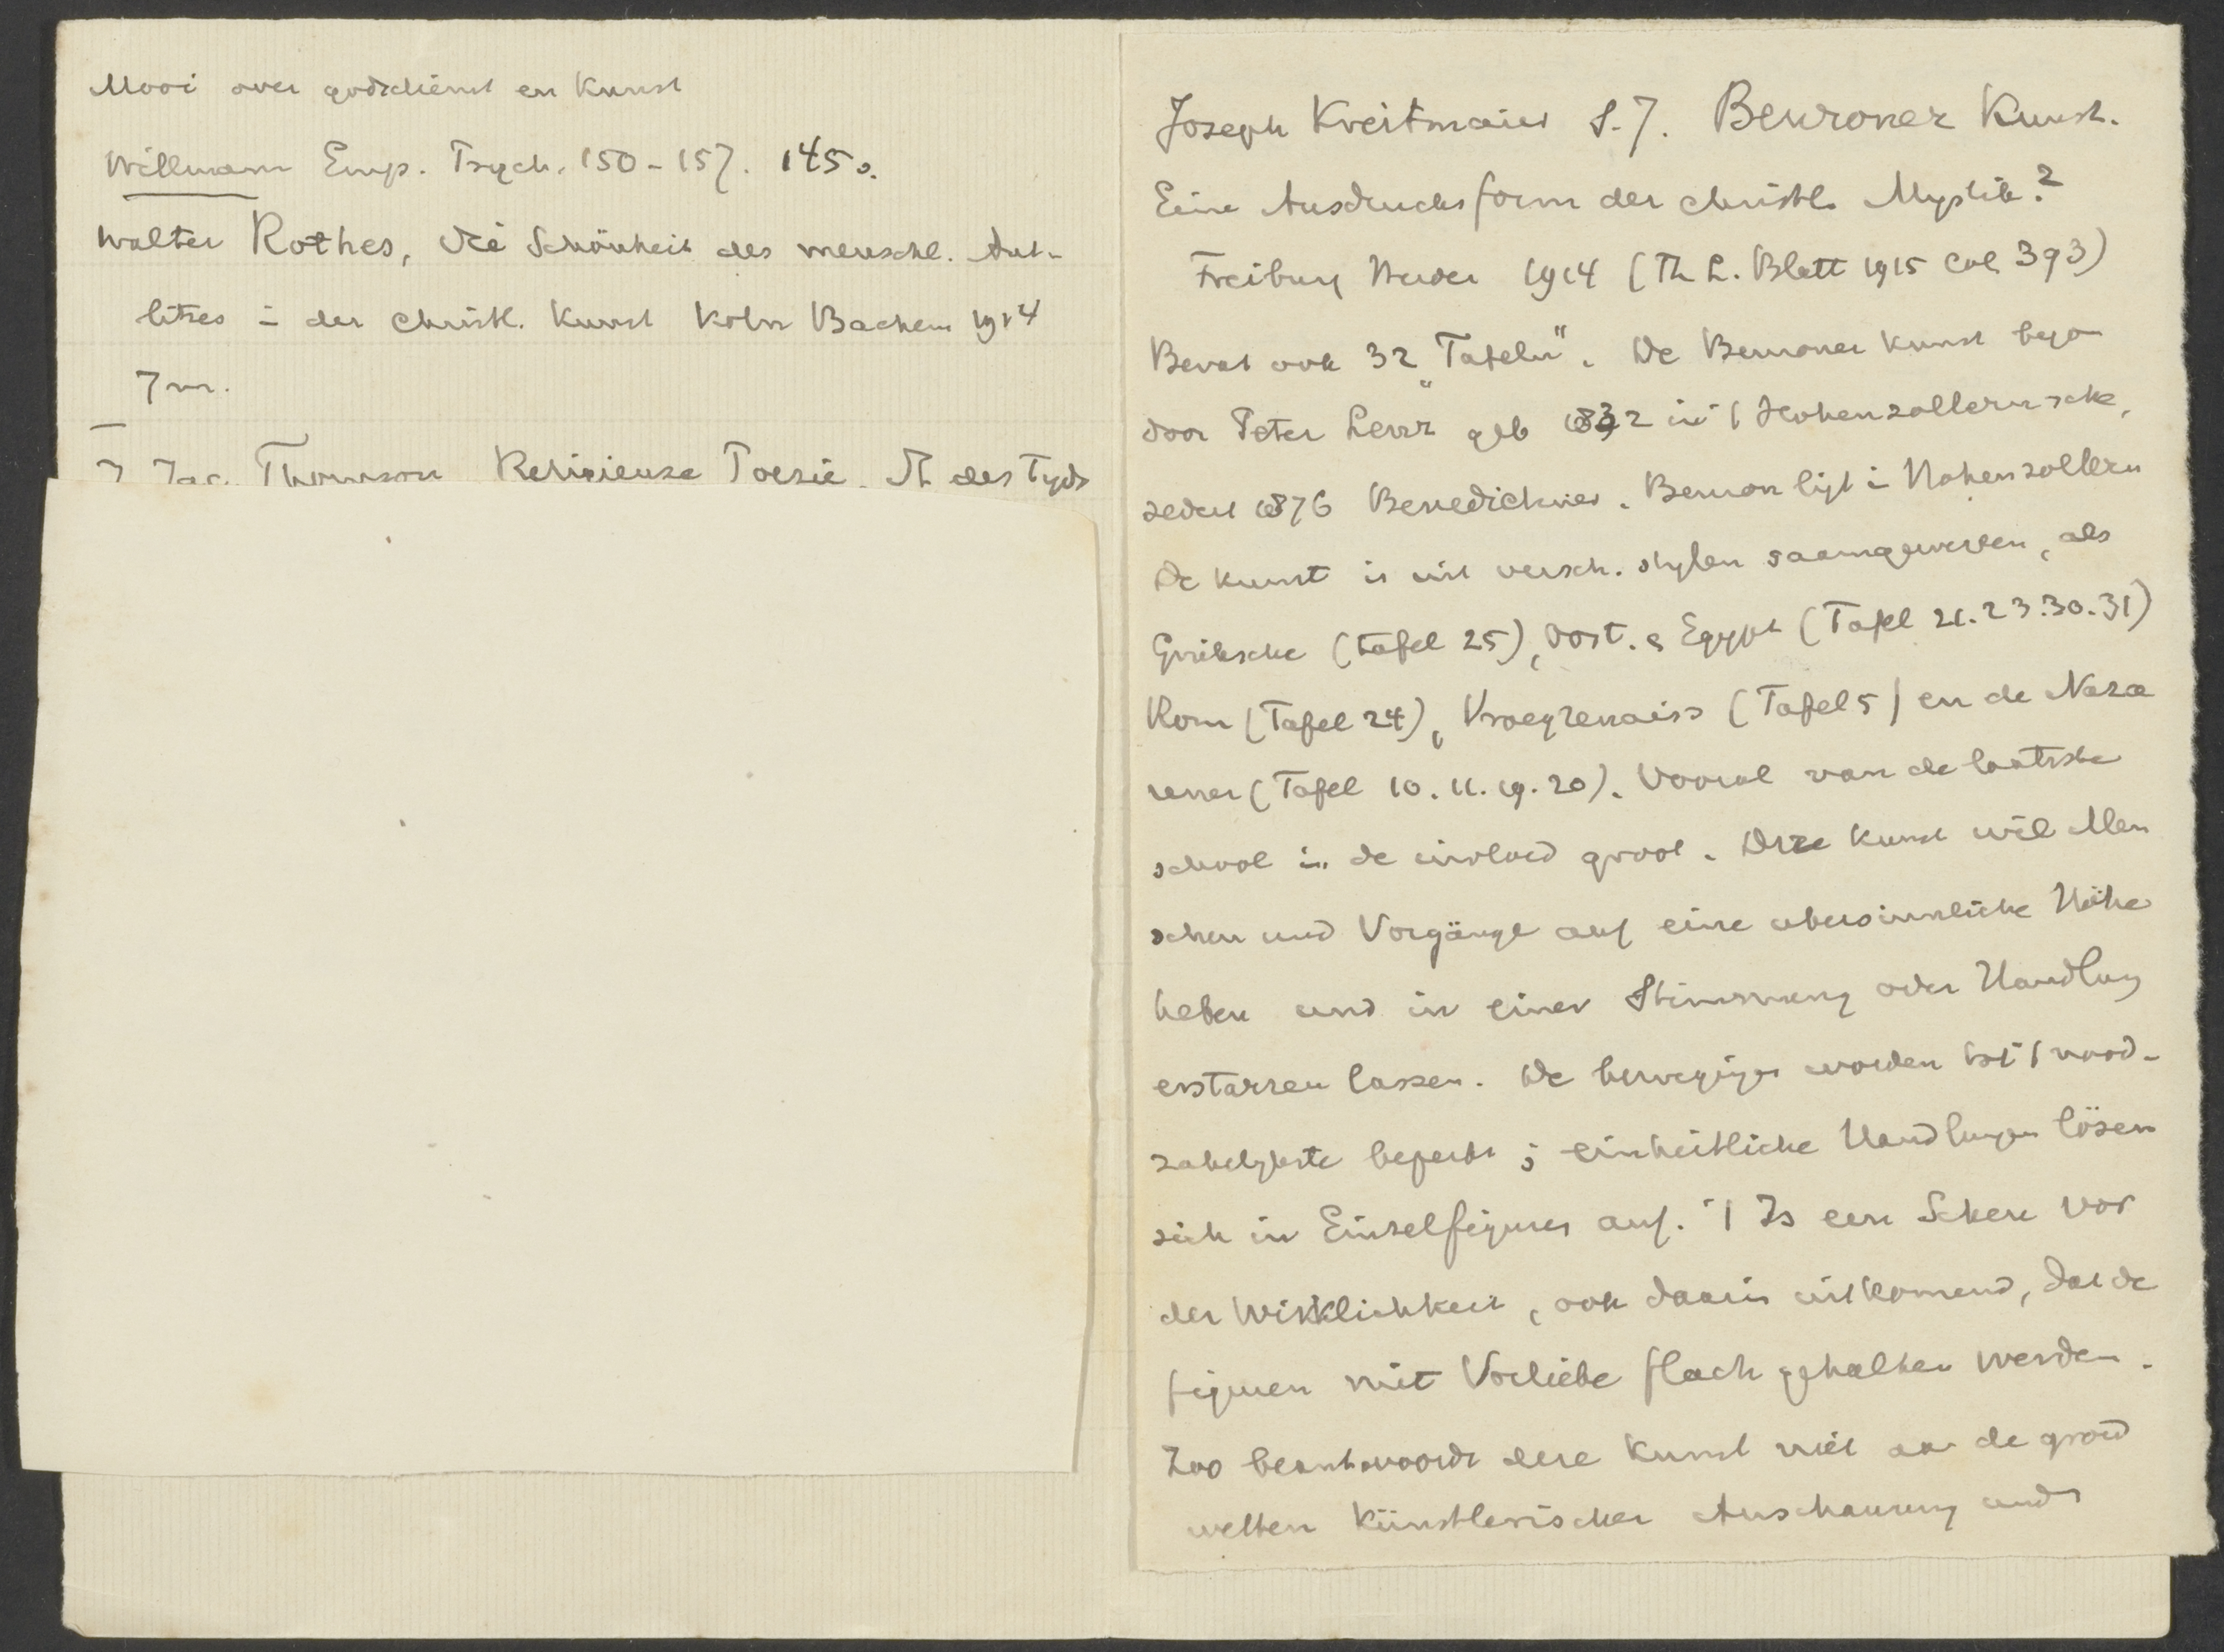 Mooi over godsdienst en Kunst
Willmann Emp. Psych. 150-157. 145 s.
Walter Rothes, Die Schönheit des menschl. Ant-
litzes in der christl. Kunst Köln Bachem 1914
7 m.
J Jac. Thomson Religieuze Poezie. St. des Tyds
Joseph Kreitmaier S.J. Beuroner Kunst.
Eine Ausdrucksform der christl. Mystik.2
Freiburg Herder 1914 (Th L. Blatt 1915 Col 393)
Bevat ook 32 „Tafeln". De Beuroner Kunst begon
door Peter Lenz geb 1832 in 't Hohenzollernsche,
sedert 1876 Benedictiner. Beuron ligt in Hohenzollern
De kunst is uit versch. stylen saamgeweven, als
Grieksche (tafel 25), Oost. & Egypt (Tafel 21.23.30.31)
Rom (Tafel 24), Vroegrenaiss (Tafel 5) en de Naza
rener (Tafel 10.11.19.20). Vooral van de laatste
school is de invloed groot. Deze Kunst wil Men
schen und Vorgänge auf eine übersinnliche Höhe
heben und in einer Stimmung oder Handlung
erstarren lassen. De bewegingen worden tot 't nood-
zakelykste beperkt; einheitliche Handlungen lösen
sich in Einzelfiguren auf. 't Is een Scheu vor
der Wirklichkeit, ook daarin uitkomend, dat de
figuren mit Vorliebe flach gehalten werden.
Zoo beantwoordt deze Kunst niet aan de
welten künstlerischer Anschauung und